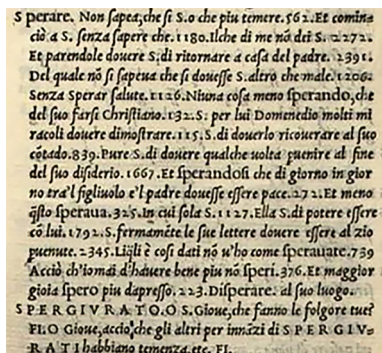 Sperare. Non sapea, che si S. o che piu temere. 562. Et comin
ciò a S. senza sapere che. 1180. Ilche di me nõ dei S. 2272.
Et parendole douere S. di ritornare a casa del padre. 2391.
Del quale nõ si sapeua che si douesse S. altro che male. 1206.
Senza Sperar salute. 1126. Niuna cosa meno sperando, che
del suo farsi Christiano. 132. S. per lui Domenedio molti mi
racoli douere dimostrare. 115. S. di douerlo ricouerare al suo
cõtado. 839. Pure S. di douere qualche uolta puenire al fine
del suo disiderio. 1667. Et sperandosi che di giorno in gior
no tra'l figliuolo e'l padre douesse essere pace. 272. Et meno
q̃sto speraua. 325. In cui sola S. 1127. Ella S. di potere essere
cõ lui. 1792. S. fermamẽte le sue lettere douere essere al zio
puenute. 2345. è cosi dati nõ u'ho come sperauate. 739
Acciò ch'iomai d'hauere bene piu nõ speri. 376. Et maggior
gioia spero piu dapresso. 223. Disperare. al suo luogo.
SPERGIVRATO. O S. Gioue, che fanno le folgore tue?
FI. O Gioue, acciò, che gli altri per innãzi di SPERGIV-
RATI habbiano temenza. etc. FI.